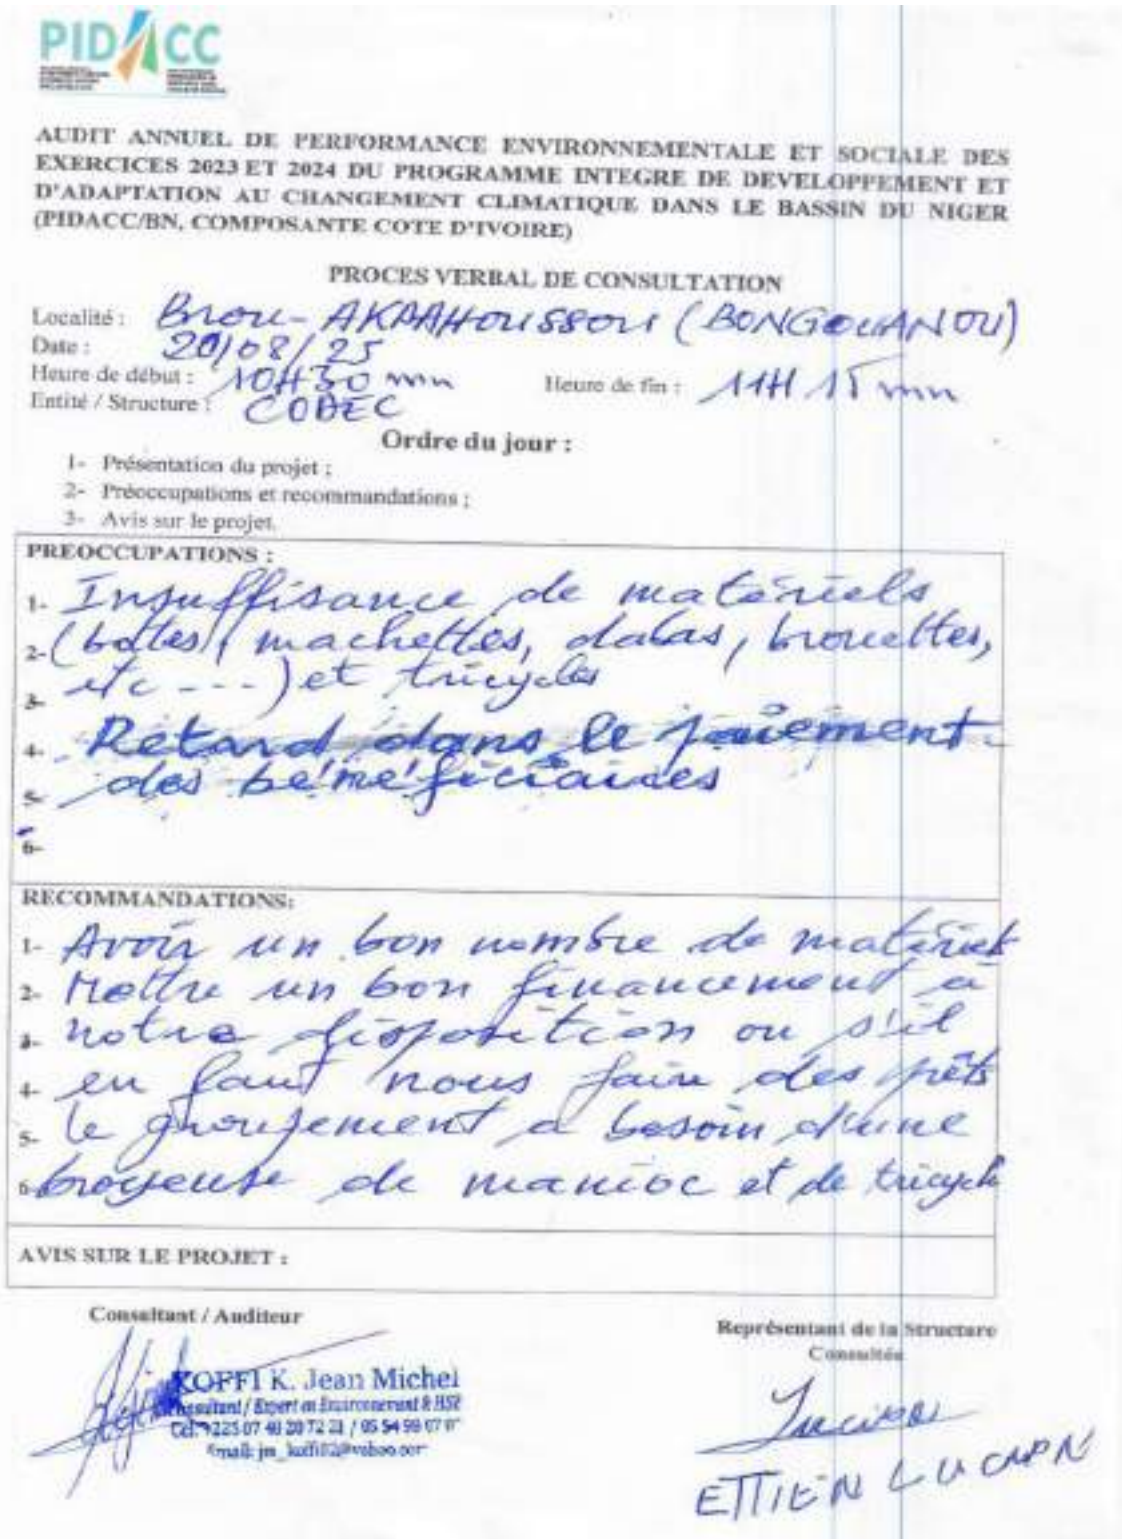 PIDACC
AUDIT ANNUEL DE PERFORMANCE ENVIRONNEMENTALE ET SOCIALE DES
EXERCICES 2023 ET 2024 DU PROGRAMME INTEGRE DE DEVELOPPEMENT ET
D'ADAPTATION AU CHANGEMENT CLIMATIQUE DANS LE BASSIN DU NIGER
(PIDACC/BN, COMPOSANTE COTE D'IVOIRE)
PROCES VERBAL DE CONSULTATION
Localité : Brou-AKPAHOUSSOU (BONGOUANOU)
Date : 20/08/25
Heure de début : 10H30 mn Heure de fin : 11H 15 mn
Entité / Structure : CODEC
Ordre du jour :
1- Présentation du projet ;
2- Préoccupations et recommandations ;
3- Avis sur le projet.
PREOCCUPATIONS :
1- Insuffisance de matériels
2- (bottes, machettes, dabas, brouettes,
3- etc ---) et tricycles
4- Retard dans le paiement
5- des bénéficiaires
6-
RECOMMANDATIONS:
1- Avoir un bon nombre de matériels
2- Mettre un bon financement à
3- notre disposition ou s'il
4- en faut nous faire des prêts
5- Le groupement a besoin d'une
6- broyeuse de manioc et de tricycle
AVIS SUR LE PROJET :
Consultant / Auditeur
Représentant de la Structure
Consultée
KOFFI K. Jean Michel
Consultant / Expert en Environnement & HSE
ETTIEN